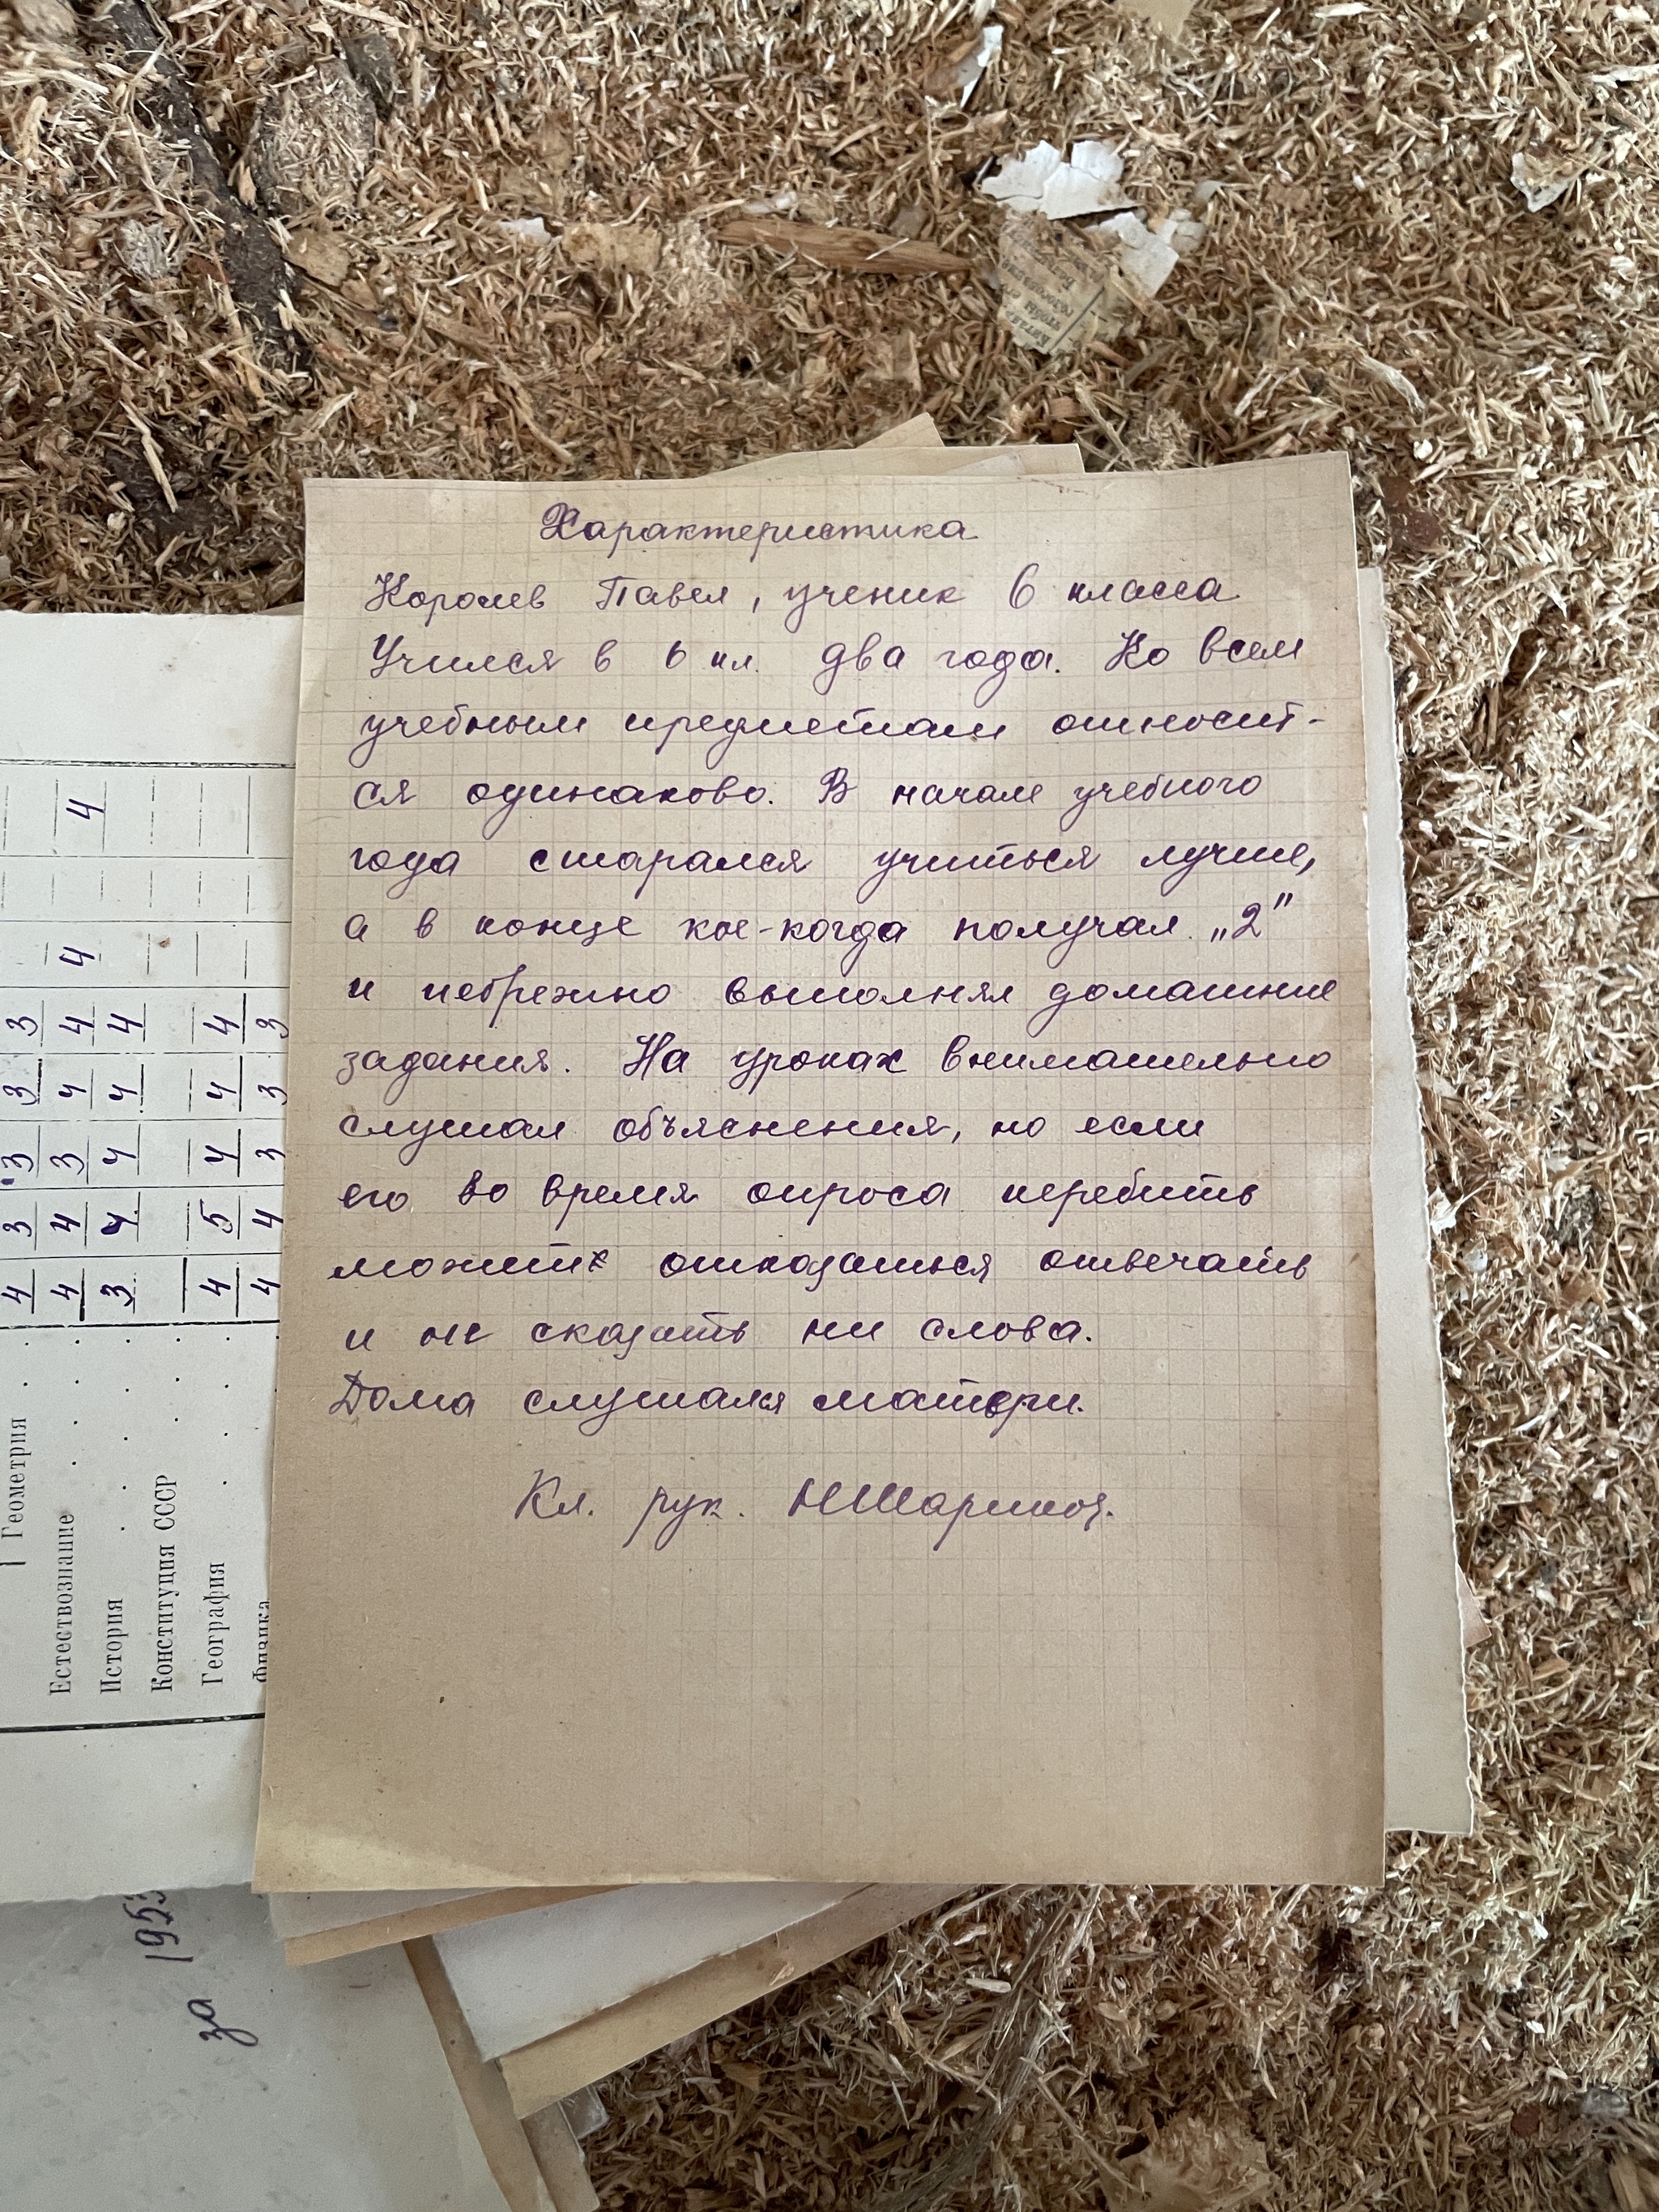 Характеристика
Королев Павел, ученик 6 класса
Учился в 6 кл. два года. Ко всем
учебным предметам относит-
ся одинаково. В начале учебного
года старался учиться лучше,
а в конце кое-когда получал „2"
и небрежно выполнял домашние
задания. На уроках внимательно
слушал объяснения, но если
его во время опроса перебить
может отказаться отвечать
и не сказать ни слова.
Дома слушался матери.
Кл. рук.
Геометрия 4 3 3 3 3
Естествознание 4 4 3 4 4 4 4
История 3 4 4 4 4
Конституция СССР
География 4 5 4 4 4
Физика 4 4 3 3 3
за 1953